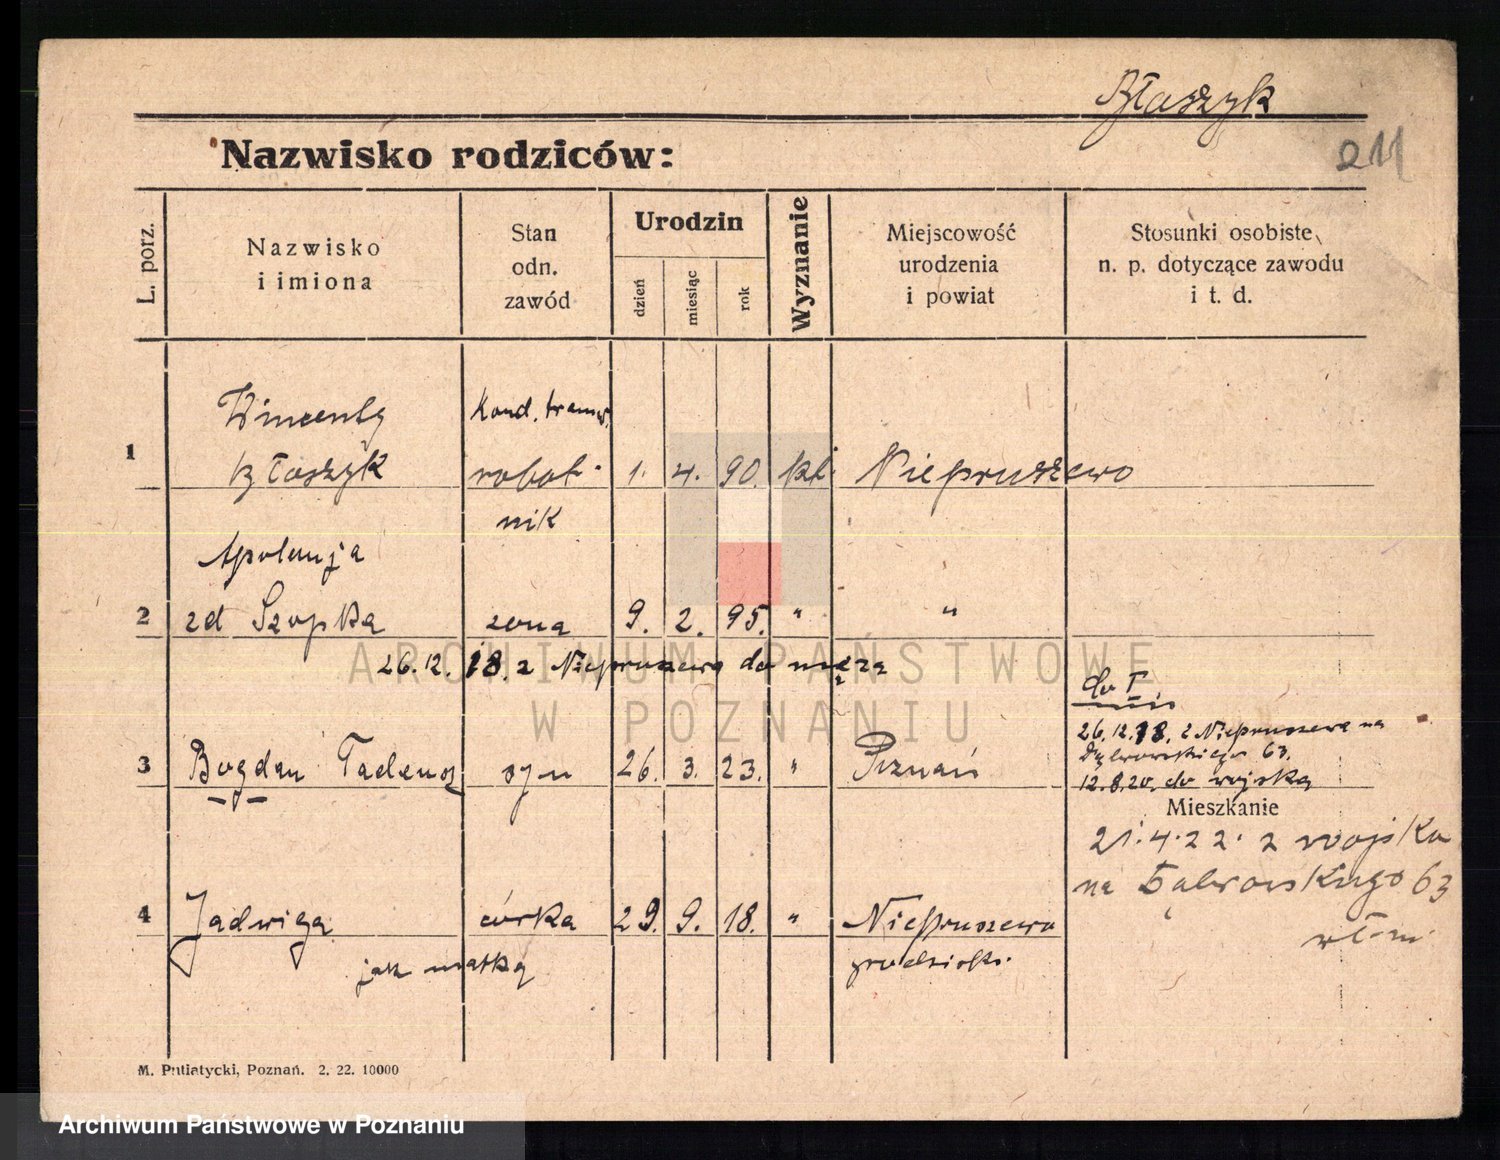 Błaszyk
Nazwisko rodziców:
211
L. porz.
Nazwisko
i imiona
Stan
odn.
zawód
Urodzin
dzień
miesiąc
rok
Wyznanie
Miejscowość
urodzenia
i powiat
Stosunki osobiste,
n. p. dotyczące zawodu
i t. d.
Wincenty
Kond. tramw.
1 Błaszyk robot- 1. 4. 90. kt. Niepruszewo
nik
Apolonja
2 zd Szopka żona 9. 2. 95. " "
26.12.18. z Niepruszewa do męża
3 Bogdan Tadeusz syn 26. 3. 23. " Poznań
do 1
26.12.18. z Niepruszewa na
Dąbrowskiego 63.
12.8.20. do wojska
Mieszkanie
21.4.22. z wojska
na Dąbrowskiego 63
4 Jadwiga córka 29. 9. 18. " Niepruszewo
jak matka grodziski.
M. Putiatycki, Poznań. 2. 22. 10000
ARCHIWUM PAŃSTWOWE
W POZNANIU
Archiwum Państwowe w Poznaniu